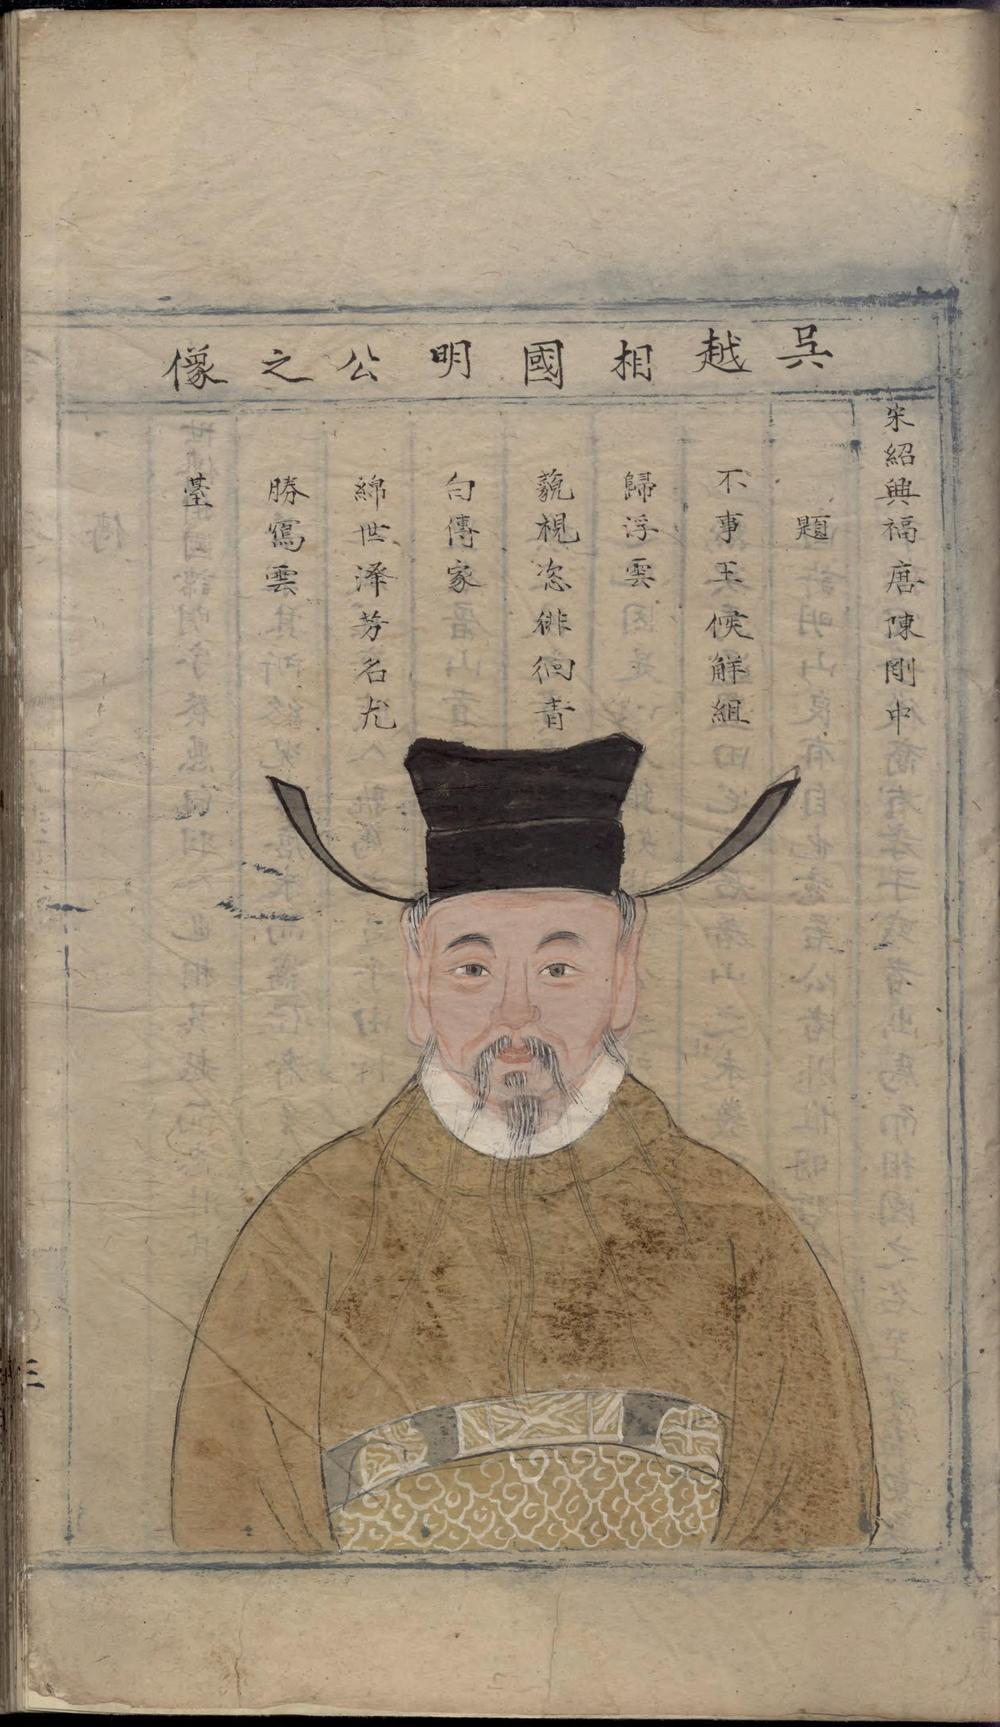 吳越相國明公之像
宋紹興福唐陳剛中
題
不事王侯解組
歸浮雲
藐視恣徘徊青
白傳家
綿世澤芳名尤
勝寫雲
臺
三